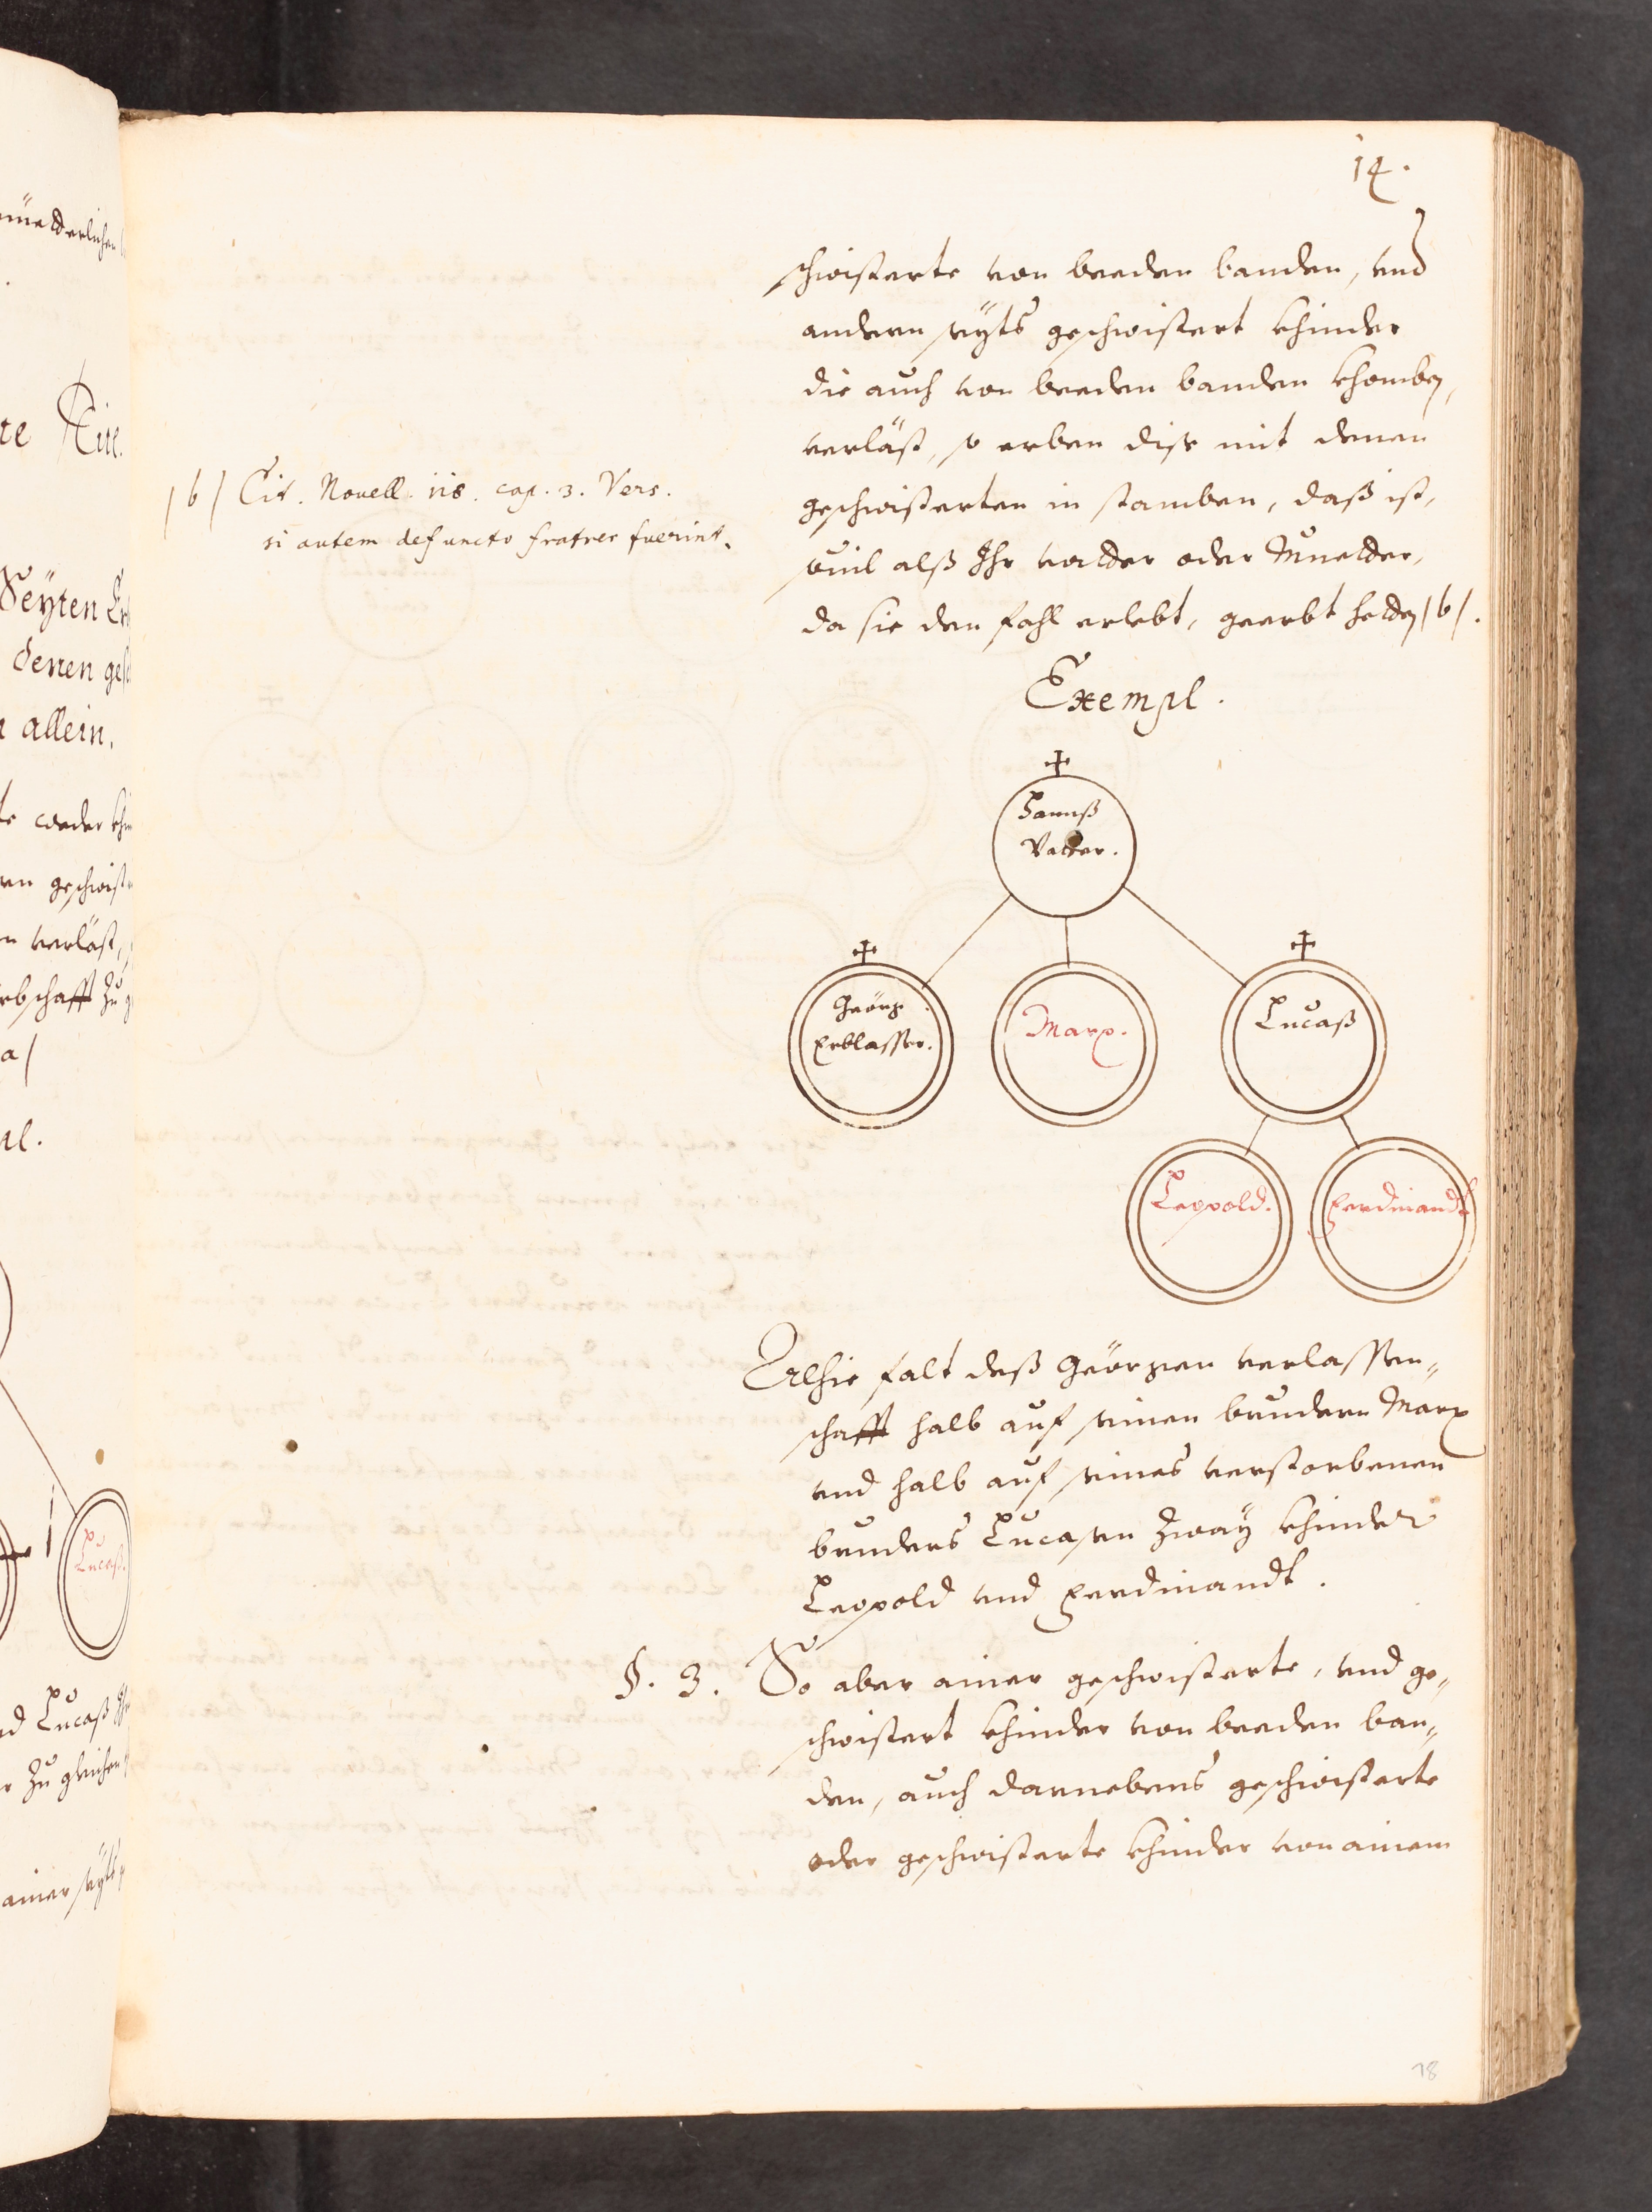 14.
schwisterte von beeden banden, vnd
andern seyts geschwistert khinder
die auch von beeden banden khomben,
verläst, so erben dise mit denen
geschwisterten in stamben, daß ist,
souil alß Ihr vatter oder Muetter,
da sie den fahl erlebt, geerbt hetten /b/.
/b/ Cit. Nouell. 118. cap. 3. Vers.
si autem defuncto fratres fuerint.
Exempl.
Hannß
Vatter.
Geörg
Erblasser.
Marx.
Lucaß
Leopold.
Ferdinandt
Alhie falt deß Geörgen verlassen„
schafft halb auf seinen bruedern Marx
vnd halb auf seines verstorbenen
brueders Lucasen Zway khinder
Leopold vnd Ferdinandt.
§. 3. So aber ainer geschwisterte, vnd ge„
schwistert khinder von beeden ban„
den, auch darnebens geschwisterte
oder geschwisterte khinder von ainem
78
müetterlichen
Seyten
denen
allein.
verläst,
Lucaß.
Lucaß
ainer